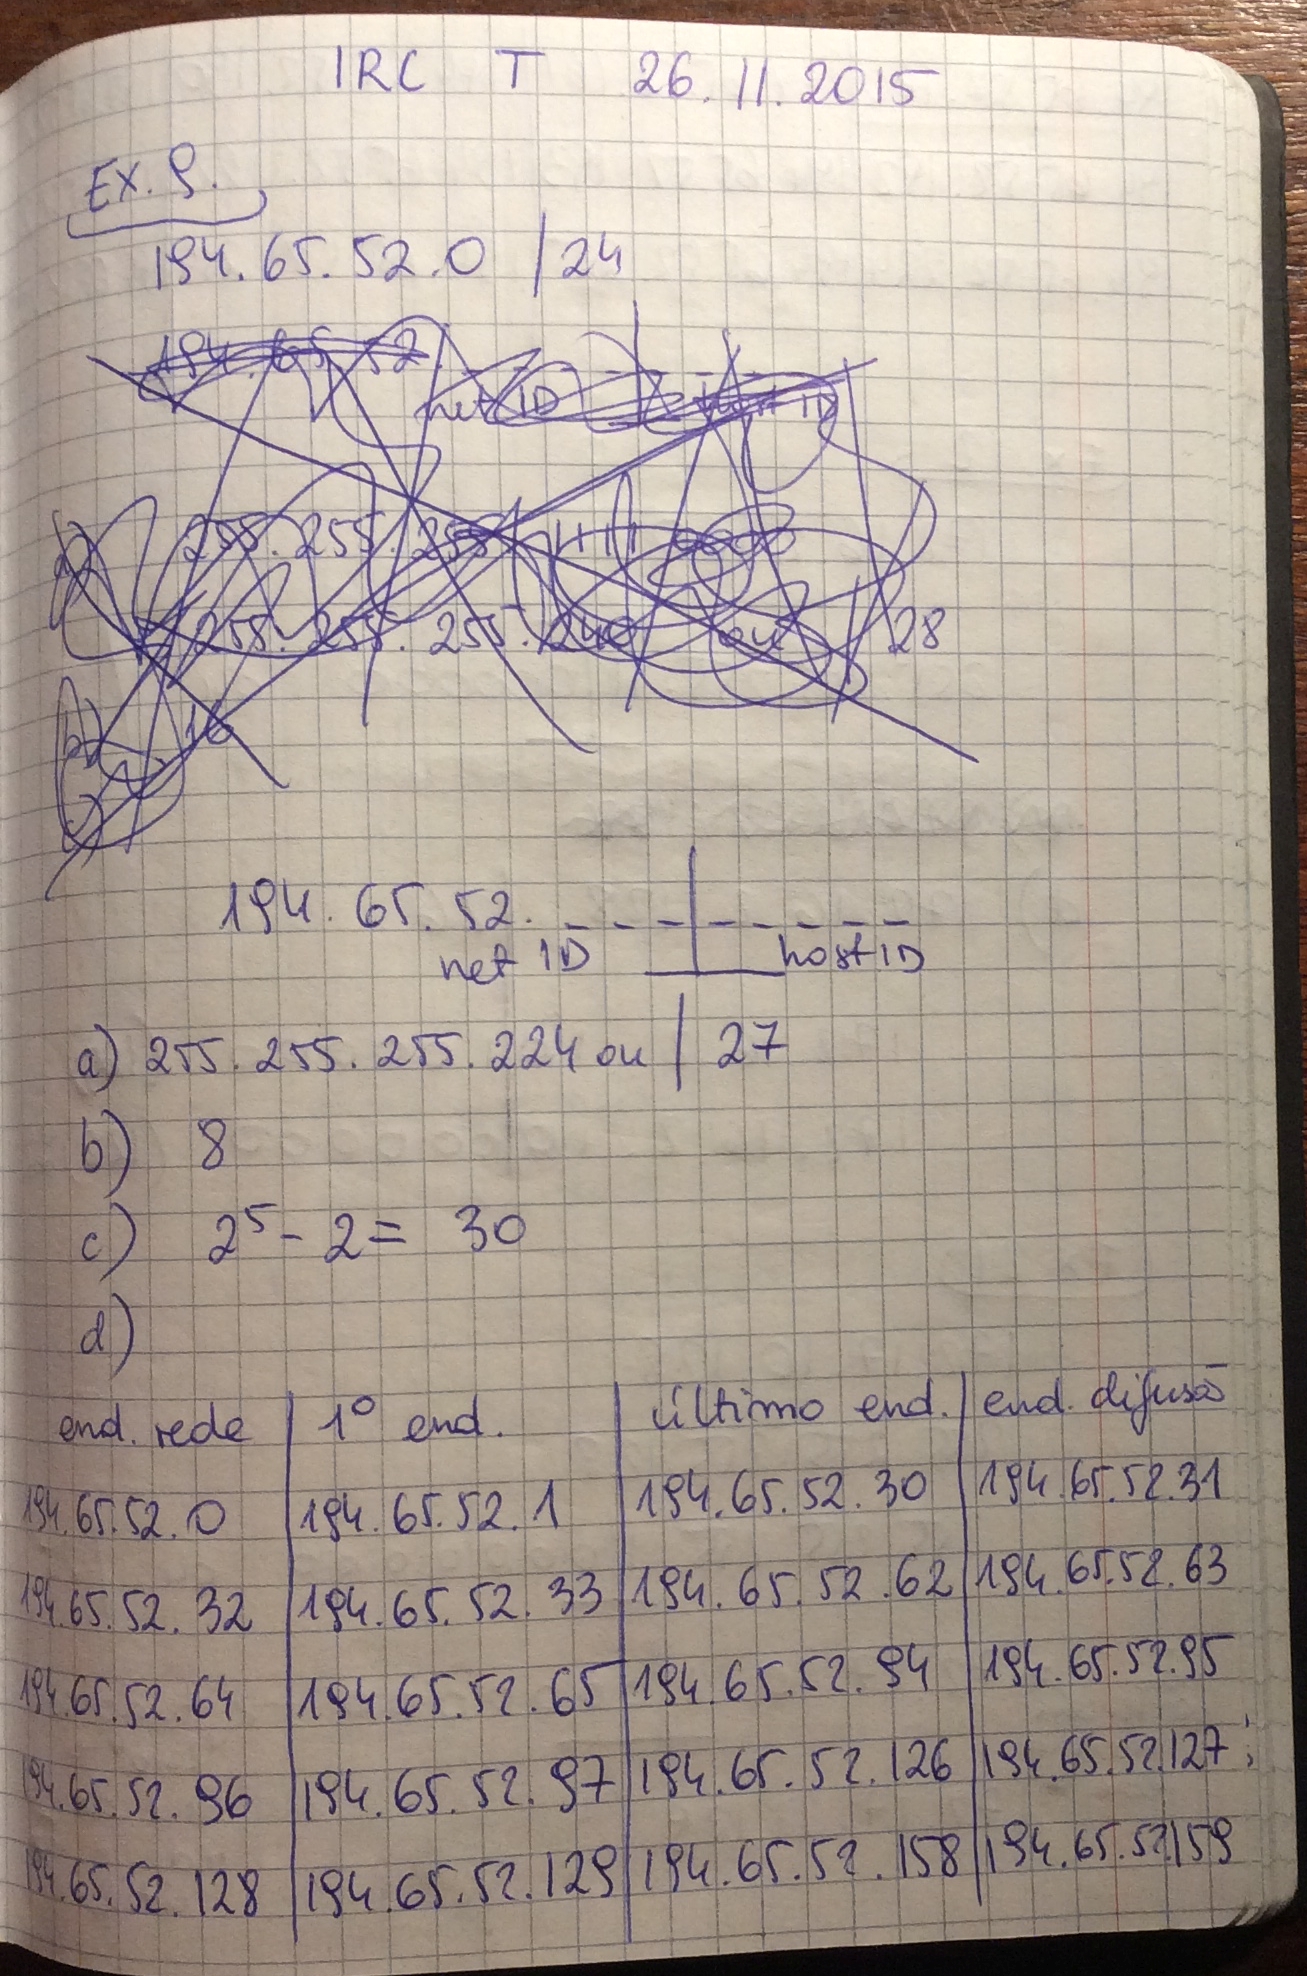 IRC T 26.11.2015
EX. 9.
194.65.52.0 /24
194.65.52.
net ID host ID
255.255.255.1111 0000
255.255.255.240 ou / 28
b) 16
194.65.52. _ _ _ | _ _ _ _ _
net ID host ID
a) 255.255.255.224 ou / 27
b) 8
c) 2⁵ - 2 = 30
d)
end. rede | 1º end. | último end. | end. difusão
194.65.52.0 | 194.65.52.1 | 194.65.52.30 | 194.65.52.31
194.65.52.32 | 194.65.52.33 | 194.65.52.62 | 194.65.52.63
194.65.52.64 | 194.65.52.65 | 194.65.52.94 | 194.65.52.95
194.65.52.96 | 194.65.52.97 | 194.65.52.126 | 194.65.52.127
194.65.52.128 | 194.65.52.129 | 194.65.52.158 | 194.65.52.159